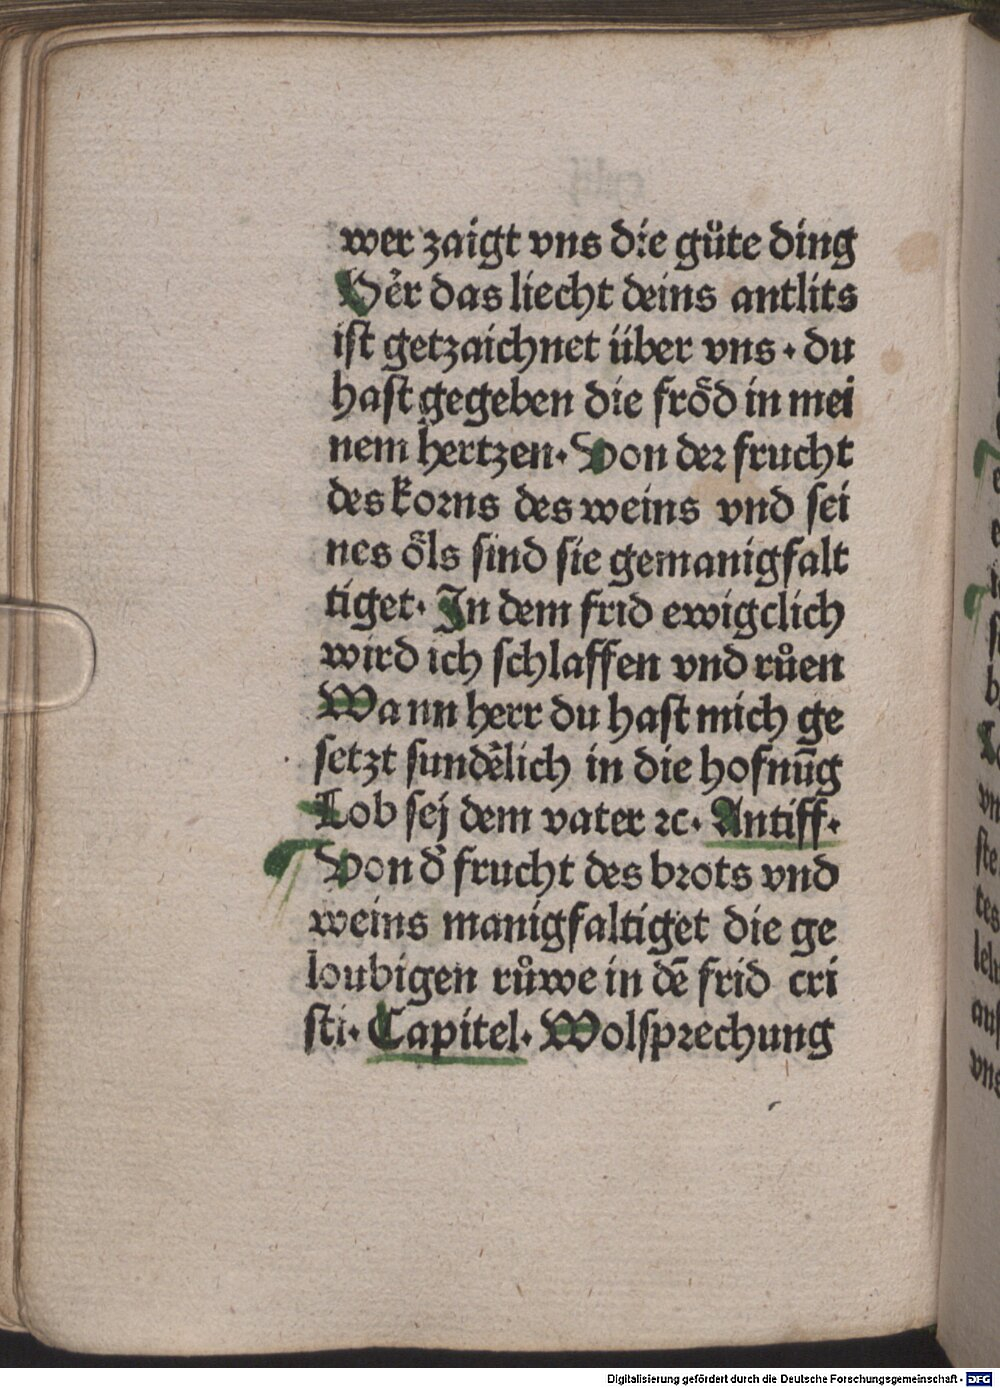 wer zaigt vns die gůte ding
Hẽr das liecht deins antlits
ist getzaichnet über vns · du
hast gegeben die fröd in mei
nem hertzen · Von der frucht
des korns des weins vnd sei
nes öls sind sie gemanigfalt
tiget · In dem frid ewigclich
wird ich schlaffen vnd růen
Wann herr du hast mich ge
setzt sundẽlich in die hofnūg
Lob sej dem vater ⁊c · Antiff ·
Von d̕ frucht des brots vnd
weins manigfaltiget die ge
loubigen růwe in dē frid cri
sti · Capitel · Wolsprechung
Digitalisierung gefördert durch die Deutsche Forschungsgemeinschaft - DFG